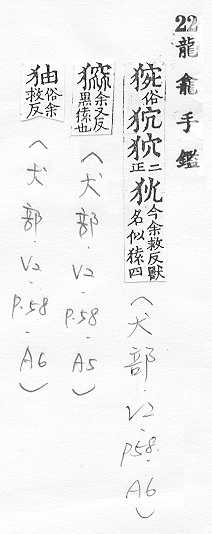 22 龍龕手鑑
俗 狖 二正 今余救反獸名似猿四
(犬部.V2-P.58.A6)
余又反黑猿也
(犬部.V2-P.58-A5)
㹨 俗余救反
(犬部.V2-P.58-A6)